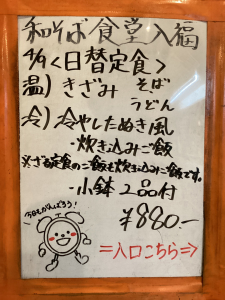 和そば食堂入福
4/9<日替定食>
温)きざみ そば
うどん
冷)冷やしたぬき風
・炊き込みご飯
※ざる定食のご飯も炊き込みご飯です。
・小鉢2品付
¥880.-
今日もがんばろう!
=入口こちら⇒